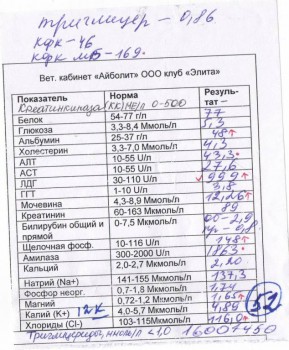 триглицер - 0,86
КФК - 46
КФК МВ - 169.
Вет. кабинет «Айболит» ООО клуб «Элита»
Показатель Норма Результат –
Креатинкиназа (КК) НЕ/л 0-500
Белок 54-77 г/л 77
Глюкоза 3,3-8,4 Ммоль/л 5,3
Альбумин 25-37 г/л 48↑
Холестерин 3,3-7,0 Ммоль/л 4,3
АЛТ 10-55 U/л 43,3
АСТ 10-55 U/л 27,6
ЛДГ 30-110 U/л 999↑
ГГТ 1-10 U/л 3,8
Мочевина 4,3-8,9 Ммоль/л 12,26↑
Креатинин 60-163 Мкмоль/л 89
Билирубин общий и прямой 0-7,5 Мкмоль/л
Щелочная фосф. 10-116 U/л 148↑
Амилаза 300-2000 U/л
Кальций 2,0-2,7 Мкмоль/л 2,20
Натрий (Na+) 141-155 Мкмоль/л 137,3
Фосфор неорг. 0,7-1,8 Мкмоль/л
Магний 0,72-1,2 Мкмоль/л 1,65↑
Калий (К+) 12к 4,0-5,7 Ммоль/л 4,89 52
Хлориды (Cl-) 103-115Мкмоль/л 116,0↑
Триглицериды, ммоль/л <1,0 1600+450